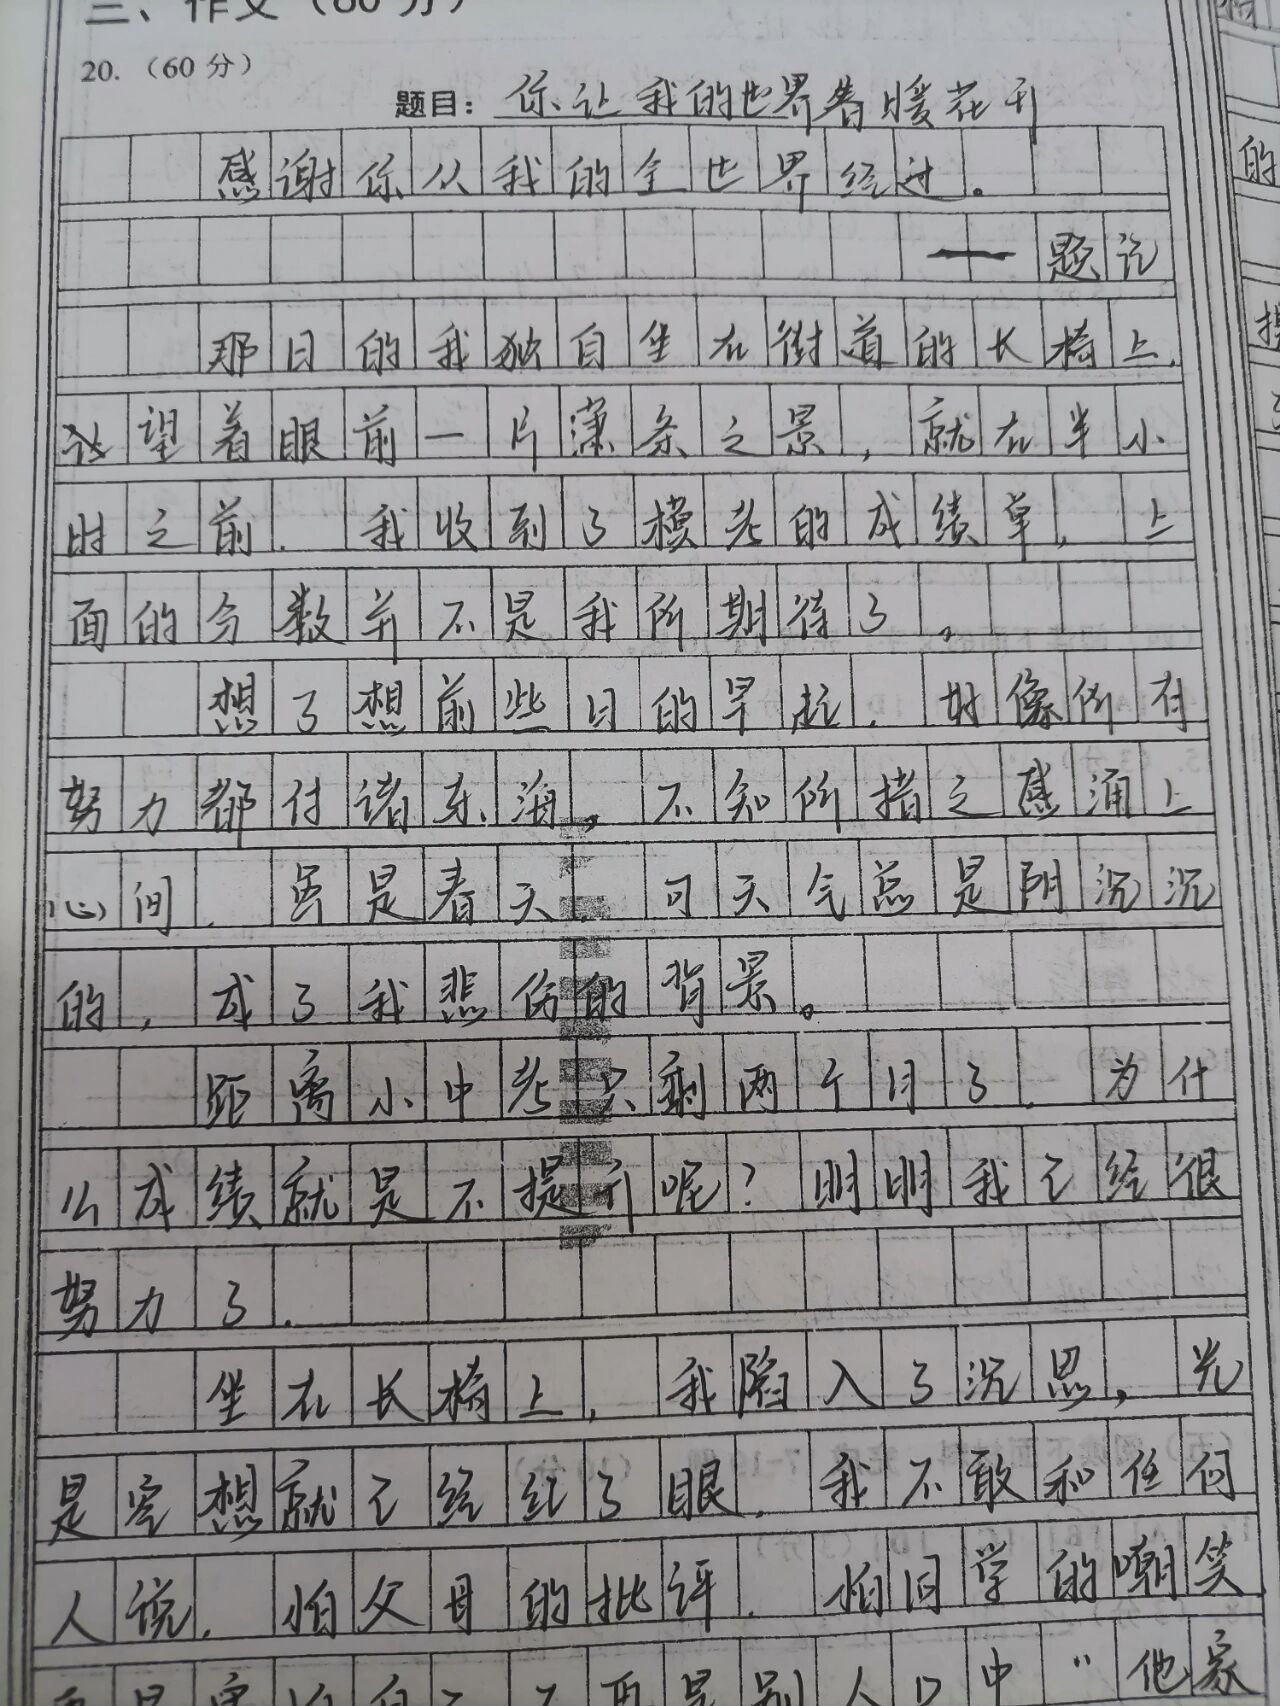 三、作文(60分)
20.(60分)
题目:你让我的世界春暖花开
感谢你从我的全世界经过。
——题记
那日的我独自坐在街道的长椅上,
望着眼前一片潇条之景,就在半小
时之前.我收到了模考的成绩单,上
面的分数并不是我所期待了。
想了想前些日的早起.好像所有
努力都付诸东海。不知所措之感涌上
心间.虽是春天.可天气总是阴沉沉
的,成了我悲伤的背景。
距离小中考只剩两个月了.为什
么成绩就是不提升呢?明明我已经很
努力了.
坐在长椅上,我陷入了沉思,光
是空想就已经红了眼.我不敢和任何
人说,怕父母的批评.怕同学的嘲笑
别人口中"他家